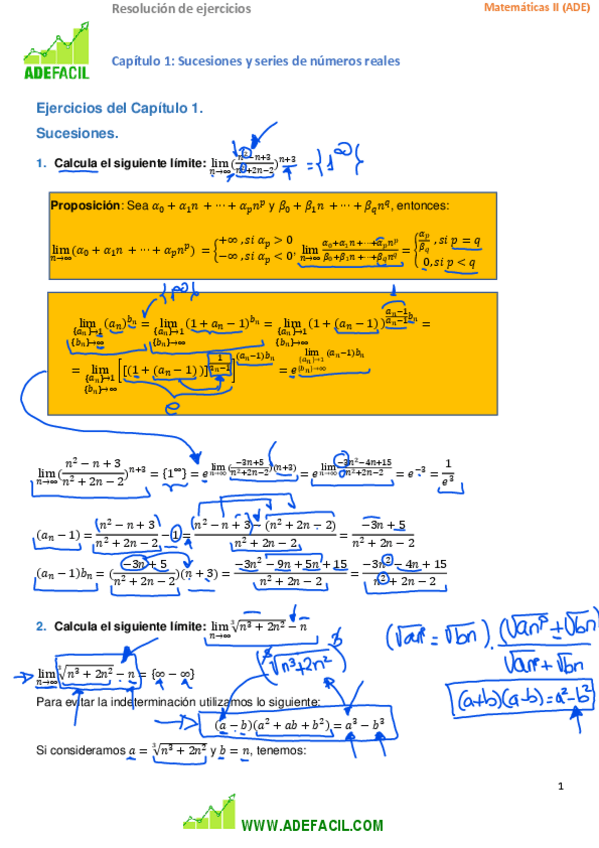 Resolución de ejercicios
Matemáticas II (ADE)
ADEFACIL
Capítulo 1: Sucesiones y series de números reales
Ejercicios del Capítulo 1.
Sucesiones.
1. Calcula el siguiente límite: lim_{n→∞} (n²−n+3 / n²+2n−2)^{n+3} = {1^∞}
Proposición: Sea α₀ + α₁n + ⋯ + αₚnᵖ y β₀ + β₁n + ⋯ + β_q n^q, entonces:
lim_{n→∞} (α₀ + α₁n + ⋯ + αₚnᵖ) = {+∞, si αₚ > 0; −∞, si αₚ < 0, lim_{n→∞} (α₀+α₁n+⋯+αₚnᵖ / β₀+β₁n+⋯+β_q n^q) = {αₚ/β_q, si p = q; 0, si p < q
{1^∞}
1
lim_{{aₙ}→1 {bₙ}→∞} (aₙ)^{bₙ} = lim_{{aₙ}→1 {bₙ}→∞} (1 + aₙ − 1)^{bₙ} = lim_{{aₙ}→1 {bₙ}→∞} (1 + (aₙ − 1))^{(aₙ−1 / aₙ−1) bₙ} =
= lim_{{aₙ}→1 {bₙ}→∞} [[(1 + (aₙ − 1))]^{1/(aₙ−1)}]^{(aₙ−1)bₙ} = e^{lim_{{aₙ}→1 {bₙ}→∞} (aₙ−1)bₙ}
e
lim_{n→∞} (n² − n + 3 / n² + 2n − 2)^{n+3} = {1^∞} = e^{lim_{n→∞} (−3n+5 / n²+2n−2)(n+3)} = e^{lim_{n→∞} −3n²−4n+15 / n²+2n−2} = e^{−3} = 1/e³
(aₙ − 1) = (n² − n + 3) / (n² + 2n − 2) − 1 = (n² − n + 3) − (n² + 2n − 2) / n² + 2n − 2 = −3n + 5 / n² + 2n − 2
(aₙ − 1)bₙ = (−3n + 5 / n² + 2n − 2)(n + 3) = −3n² − 9n + 5n + 15 / n² + 2n − 2 = −3n² − 4n + 15 / n² + 2n − 2
2. Calcula el siguiente límite: lim_{n→∞} ∛(n³ + 2n²) − n
(√aₙᵖ = √bn) · (√anᵖ + √bn) / √anᵖ + √bn
lim_{n→∞} ∛(n³ + 2n²) − n = {∞ − ∞}
(∛(n³+2n²))³
(a+b)(a−b) = a²−b²
Para evitar la indeterminación utilizamos lo siguiente:
(a − b)(a² + ab + b²) = a³ − b³
Si consideramos a = ∛(n³ + 2n²) y b = n, tenemos:
1
WWW.ADEFACIL.COM